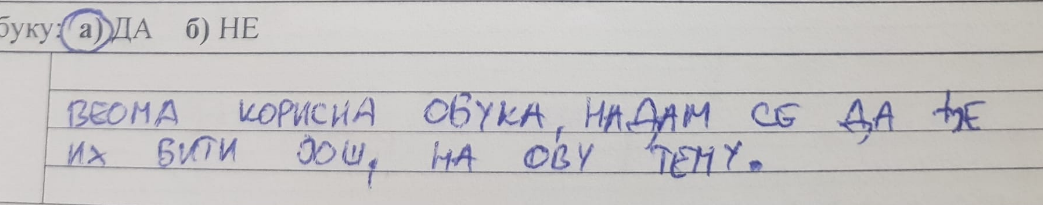 буку: а) ДА б) НЕ
ВЕОМА КОРИСНА ОБУКА, НАДАМ СЕ ДА ЋЕ
ИХ БИТИ ЈОШ, НА ОВУ ТЕМУ.